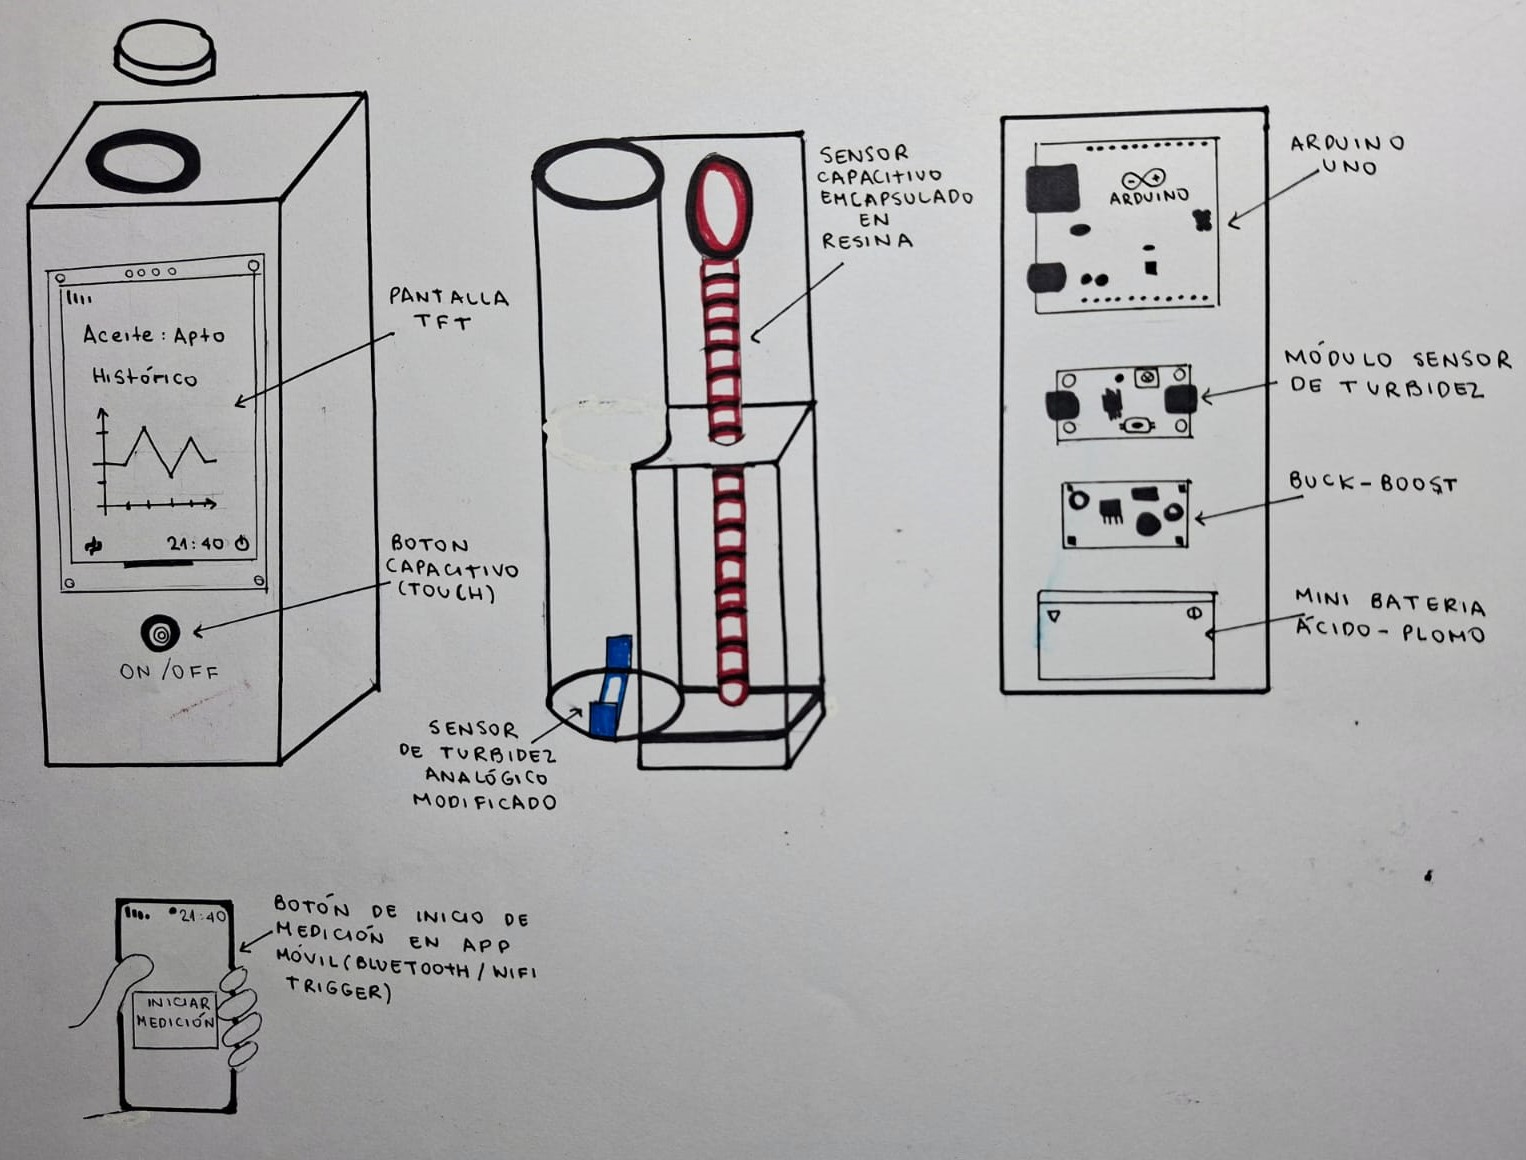 Aceite: Apto
Histórico
21:40
ON/OFF
PANTALLA
TFT
BOTON
CAPACITIVO
(TOUCH)
SENSOR
CAPACITIVO
EMCAPSULADO
EN
RESINA
SENSOR
DE TURBIDEZ
ANALÓGICO
MODIFICADO
ARDUINO
ARDUINO
UNO
MÓDULO SENSOR
DE TURBIDEZ
BUCK-BOOST
MINI BATERIA
ÁCIDO-PLOMO
21:40
INICIAR
MEDICIÓN
BOTÓN DE INICIO DE
MEDICIÓN EN APP
MÓVIL (BLUETOOTH / WIFI
TRIGGER)